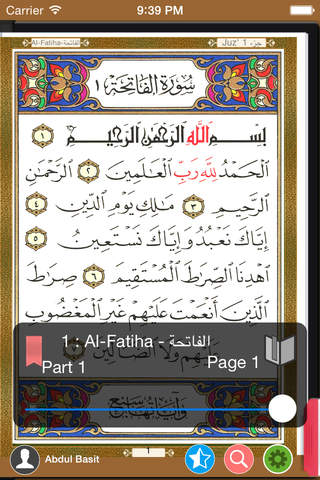 Carrier 9:39 PM
Al-Fatiha-الفاتحة Juz' 1 جزء
سُورَةُ الفَاتِحَةِ ١
بِسْمِ اللَّهِ الرَّحْمَٰنِ الرَّحِيمِ ١
الْحَمْدُ لِلَّهِ رَبِّ الْعَالَمِينَ ٢ الرَّحْمَٰنِ
الرَّحِيمِ ٣ مَالِكِ يَوْمِ الدِّينِ ٤
إِيَّاكَ نَعْبُدُ وَإِيَّاكَ نَسْتَعِينُ ٥
اهْدِنَا الصِّرَاطَ الْمُسْتَقِيمَ ٦ صِرَاطَ
الَّذِينَ أَنْعَمْتَ عَلَيْهِمْ غَيْرِ الْمَغْضُوبِ
عَلَيْهِمْ وَلَا الضَّالِّينَ
1 : Al-Fatiha - الفاتحة
Part 1 Page 1
وآياتها سبع
1
Abdul Basit